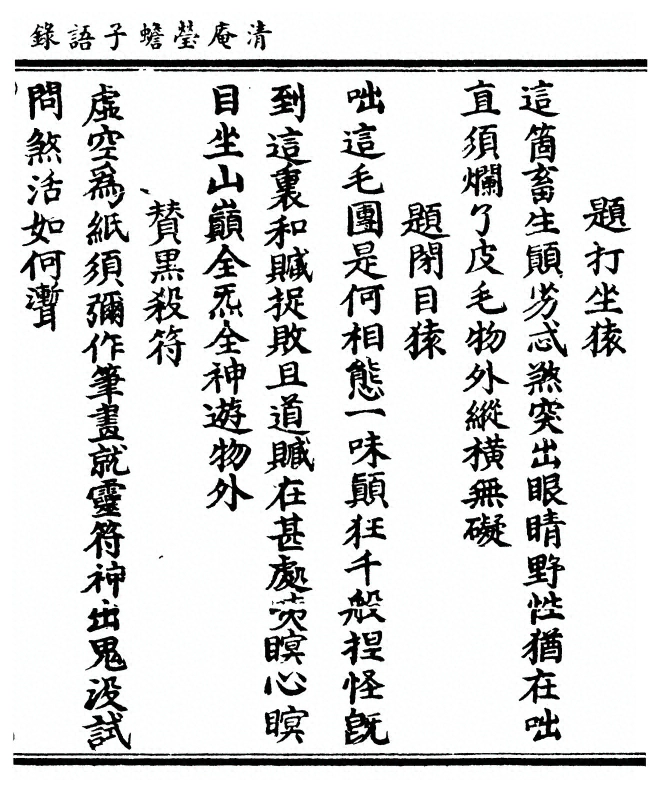 清庵瑩蟾子語錄
題打坐猿
這箇畜生顛劣忒煞突出眼睛野性猶在咄
直須爛了皮毛物外縱橫無礙
題閉目猿
咄這毛團是何相態一味顛狂千般捏怪旣
到這裏和贓捉敗且道贓在甚處咦瞑心瞑
目坐山巔全炁全神遊物外
贊黑殺符
虛空爲紙須彌作筆畫就靈符神出鬼没試
問煞活如何聻